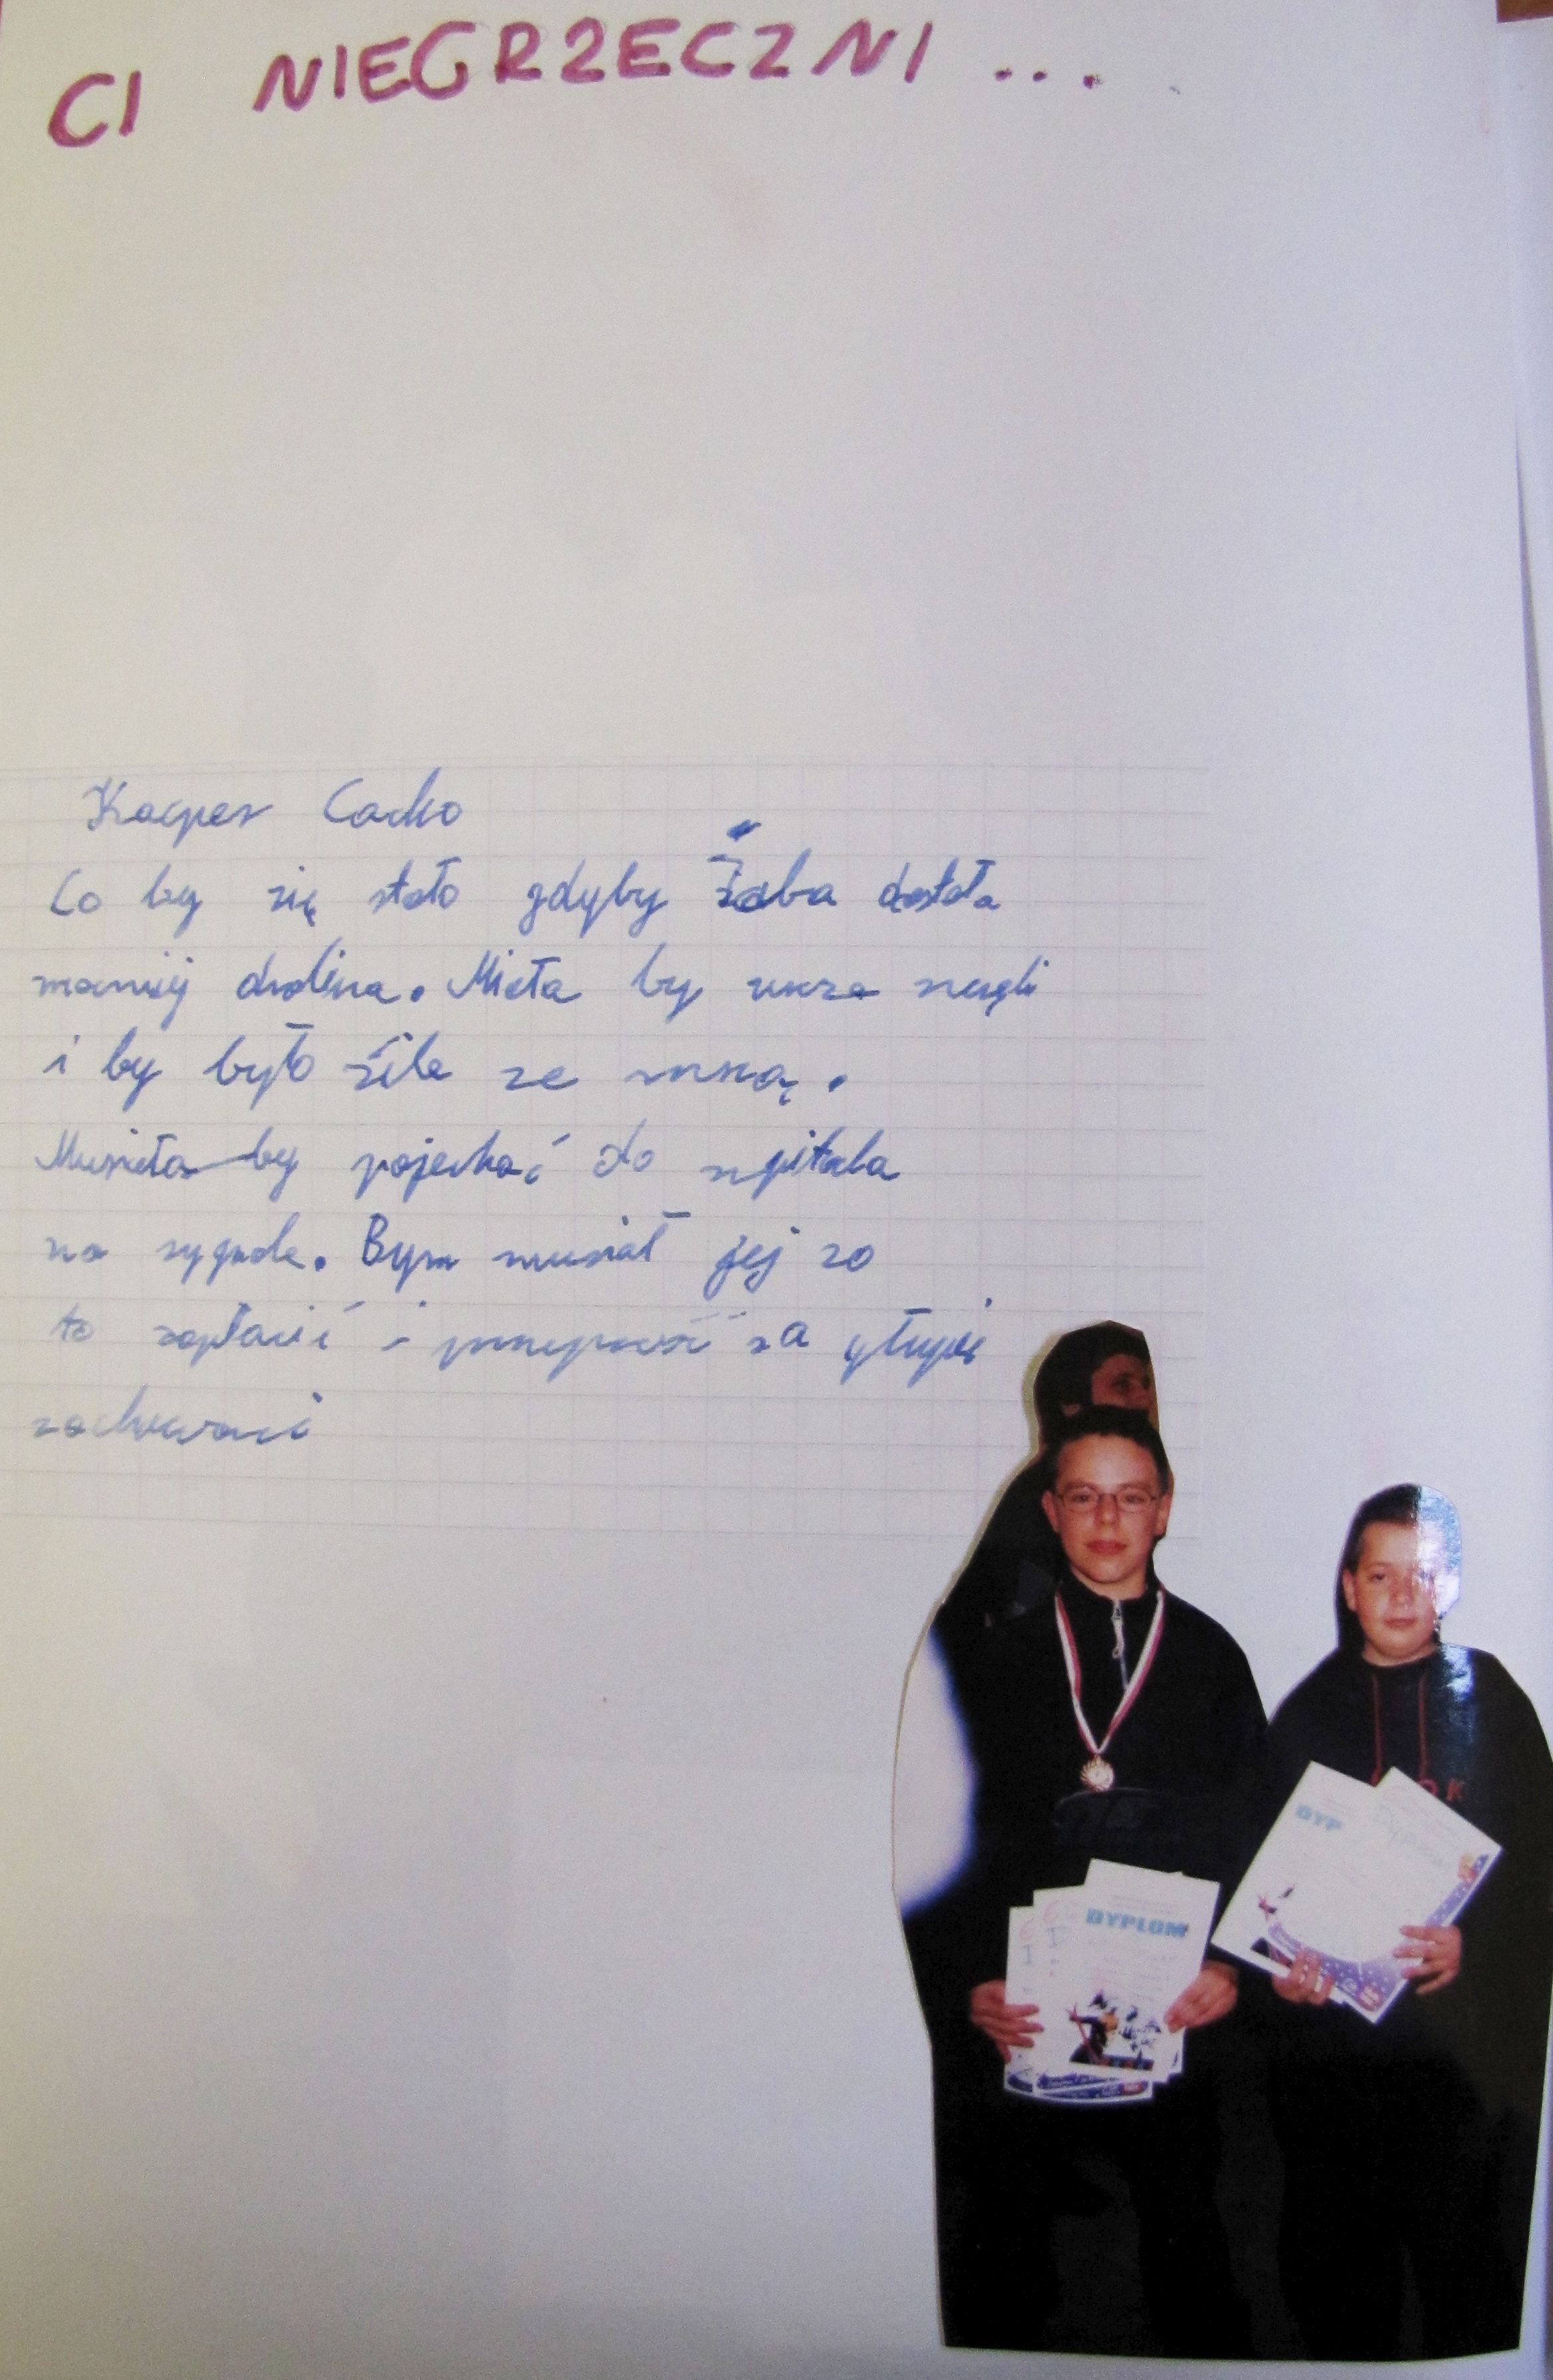 CI NIEGRZECZNI ...
Kacper Cacko
Co by się stało gdyby żaba dostała
by
i by było źile ze mną.
Musiała by pojechać do szpitala
na sygnale. Bym musiał jej za
to zapłacić i za głupie
DYPLOM
DYP
OK